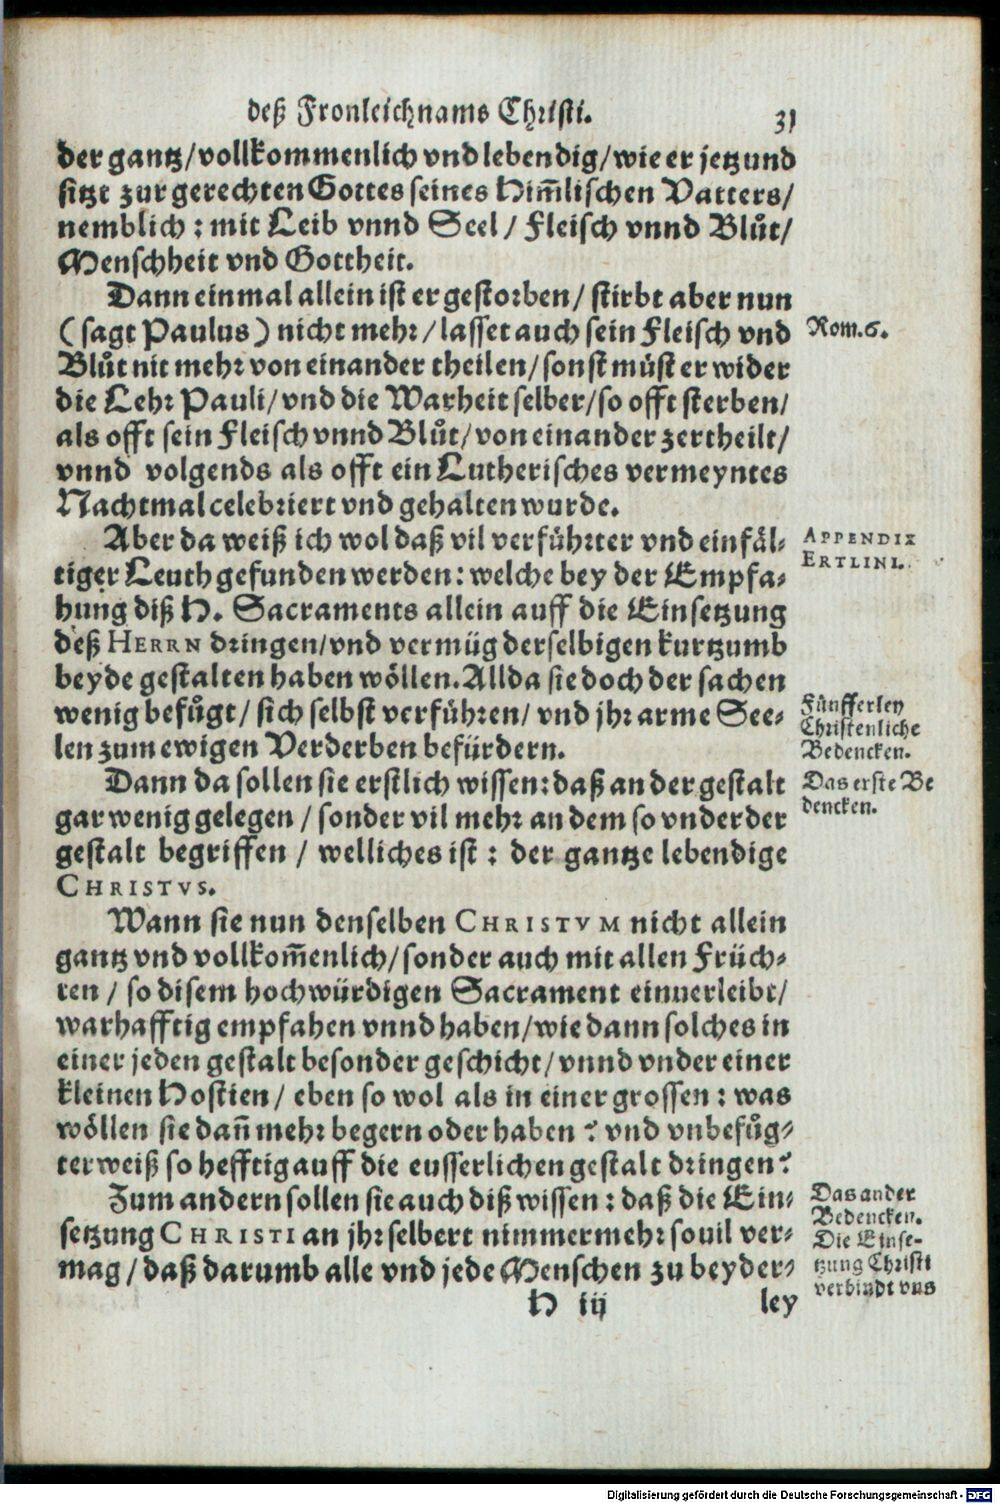 deß Fronleichnams Christi. 31
der gantz/vollkommenlich vnd lebendig/wie er jetzund
sitzt zur gerechten Gottes seines Him̃lischen Vatters/
nemblich : mit Leib vnnd Seel / Fleisch vnnd Blůt/
Menschheit vnd Gottheit.
Dann einmal allein ist er gestorben/ stirbt aber nun
(sagt Paulus) nicht mehr/lasset auch sein Fleisch vnd
Rom.6.
Blůt nit mehr von einander theilen/sonst müst er wider
die Lehr Pauli/vnd die Warheit selber/so offt sterben/
als offt sein Fleisch vnnd Blůt/von einander zertheilt/
vnnd volgends als offt ein Lutherisches vermeyntes
Nachtmal celebriert vnd gehalten wurde.
Aber da weiß ich wol daß vil verführter vnd einfäl-
APPENDIX
ERTLINI.
tiger Leuth gefunden werden: welche bey der Empfa-
hung diß H. Sacraments allein auff die Einsetzung
deß HERRN dringen/vnd vermüg derselbigen kurtzumb
beyde gestalten haben wöllen. Allda sie doch der sachen
wenig befůgt/ sich selbst verführen/ vnd jhr arme See-
len zum ewigen Verderben befürdern.
Fünfferley
Christenliche
Bedencken.
Dann da sollen sie erstlich wissen: daß an der gestalt
Das erste Be
dencken.
gar wenig gelegen / sonder vil mehr an dem so vnder der
gestalt begriffen / welliches ist : der gantze lebendige
CHRISTVS.
Wann sie nun denselben CHRISTVM nicht allein
gantz vnd vollkom̃enlich/sonder auch mit allen Früch-
ten / so disem hochwürdigen Sacrament einuerleibt/
warhafftig empfahen vnnd haben/wie dann solches in
einer jeden gestalt besonder geschicht/ vnnd vnder einer
kleinen Hostien/ eben so wol als in einer grossen : was
wöllen sie dañ mehr begern oder haben ? vnd vnbefůg-
terweiß so hefftig auff die eusserlichen gestalt dringen?
Zum andern sollen sie auch diß wissen : daß die Ein-
setzung CHRISTI an jhr selbert nimmermehr souil ver-
mag / daß darumb alle vnd jede Menschen zu beyder-
Das ander
Bedencken.
Die Einse-
tzung Christi
verbindt vns
H iij ley
Digitalisierung gefördert durch die Deutsche Forschungsgemeinschaft - DFG